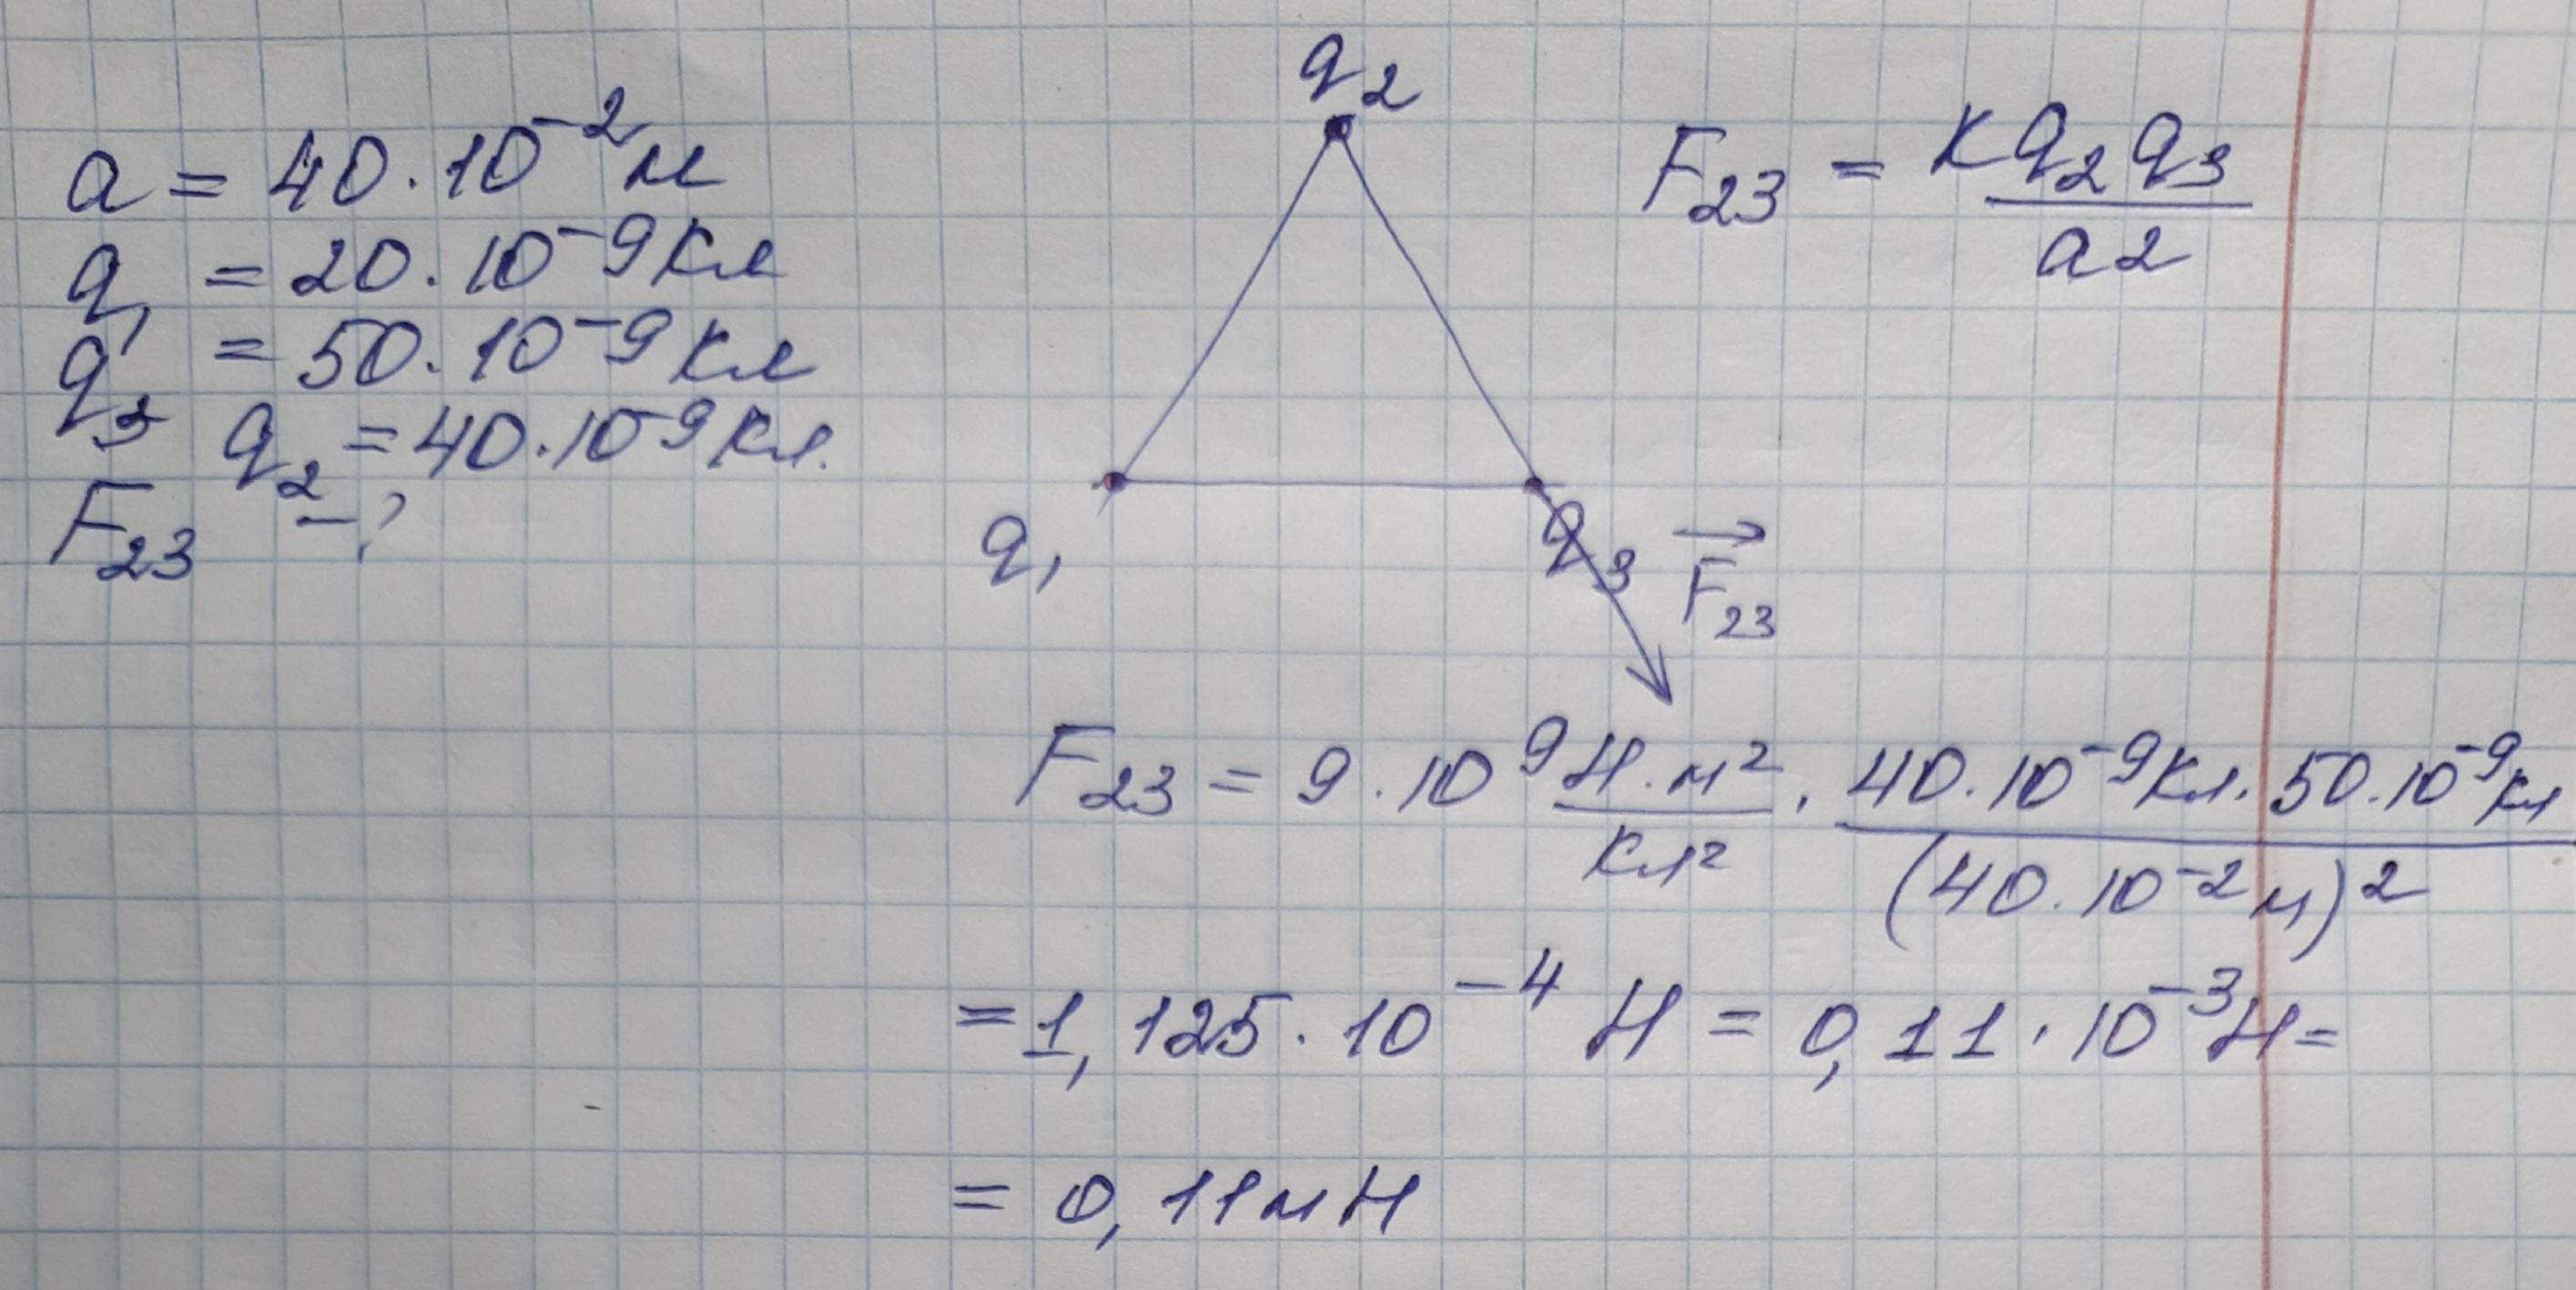 a = 40 · 10⁻² м
q₁ = 20 · 10⁻⁹ Кл
q₃ = 50 · 10⁻⁹ Кл
q₂ = 40 · 10⁻⁹ Кл.
F₂₃ – ?
q₂
q₁
q₃
F₂₃
F₂₃ = Kq₂q₃ / a2
F₂₃ = 9 · 10⁹ Н·м²/Кл² · 40·10⁻⁹Кл · 50·10⁻⁹Кл / (40·10⁻²м)²
= 1,125 · 10⁻⁴ Н = 0,11 · 10⁻³Н =
= 0,11мН